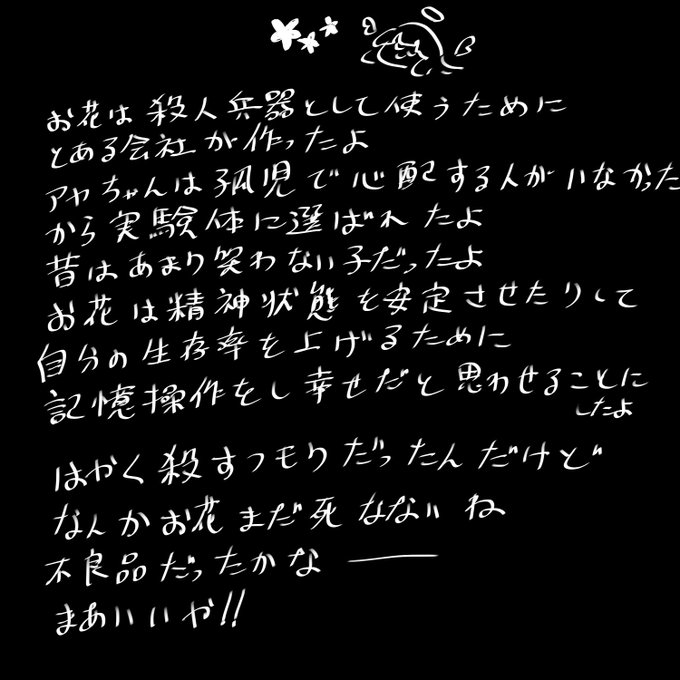 お花は殺人兵器として使うために
とある会社が作ったよ
アヤちゃんは孤児で心配する人がいなかった
から実験体に選ばれたよ
昔はあまり笑わない子だったよ
お花は精神状態を安定させたりして
自分の生存率を上げるために
記憶操作をし幸せだと思わせることに
したよ
はやく殺すつモリだったんだけど
なんかお花まだ死なないね
不良品だったかなー
まあいいや!!